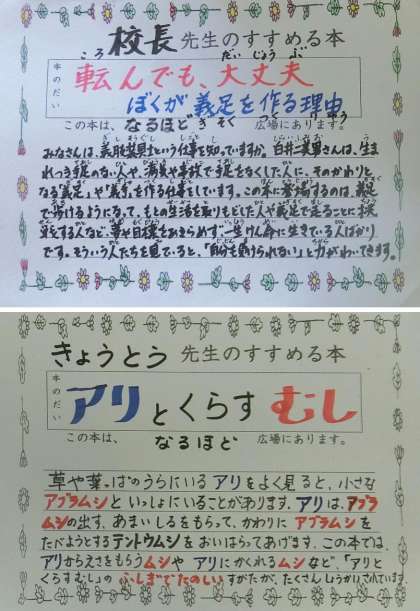 校長先生のすすめる本
本のだい
転んでも、大丈夫
ぼくが義足を作る理由
この本は、なるほど広場にあります。
みなさんは、義肢装具士という仕事を知っていますか。臼井二美男さんは、生ま
れつき手足のない人や、病気や事故で手足をなくした人に、そのかわりと
なる「義足」や「義手」を作る仕事をしています。この本に登場するのは、義足
で歩けるようになって、もとの生活を取りもどした人や義足で走ることに挑
戦する人など、夢や目標をあきらめず一生けん命に生きている人ばかり
です。そういう人たちを見ていると、「自分も負けられない」と力がわいてきます。
きょうとう先生のすすめる本
本のだい
アリとくらすむし
この本は、なるほど広場にあります。
草や葉っぱのうらにいるアリをよく見ると、小さな
アブラムシといっしょにいることがあります。アリは、アブラ
ムシの出す、あまいしるをもらって、かわりにアブラムシを
たべようとするテントウムシをおいはらってあげます。この本では、
アリからえさをもらうムシやアリにかくれるムシなど、「アリと
くらすむし」のふしぎでたのしいすがたが、たくさんしょうかいされています